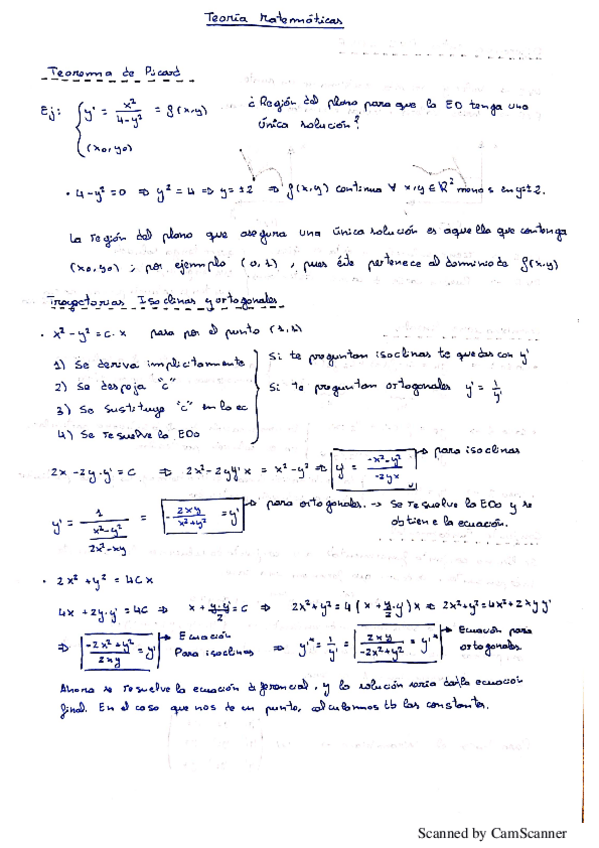 Teoría Matemáticas
Teorema de Picard
Ej: { y' = x²/(4-y²) = f(x,y) ¿Región del plano para que la ED tenga una
(x₀,y₀) única solución?
• 4-y²=0 ⇒ y²=4 ⇒ y=±2 ⇒ f(x,y) continua ∀ x,y ∈ R² menos en y=±2.
La región del plano que asegura una única solución es aquella que contenga
(x₀,y₀) ; por ejemplo (0,1) , pues éste pertenece al dominio de f(x,y)
Trayectorias Isoclinas y ortogonales
• x²-y²=c·x pasa por el punto (1,1)
1) Se deriva implícitamente
2) Se despeja "c"
3) Se sustituye "c" en la ec
4) Se resuelve la EDO
Si te preguntan isoclinas te quedas con y'
Si te preguntan ortogonales y' = 1/y'
2x-2y·y'=c ⇒ 2x²-2yy'x = x²-y² ⇒ y' = (-x²-y²)/(-2yx) → para isoclinas
y' = 1/((x²-y²)/(2x²-xy)) = -2xy/(x²+y²) = y' → para ortogonales. → Se resuelve la EDO y se
obtiene la ecuación.
• 2x²+y² = 4Cx
4x+2y·y'=4C ⇒ x + y·y'/2 = C ⇒ 2x²+y² = 4(x + y/2·y')x ⇒ 2x²+y²=4x²+2xyy'
⇒ (-2x²+y²)/(2xy) = y' → Ecuación
Para isoclinas ⇒ y'* = 1/y' = 2xy/(-2x²+y²) = y'* → Ecuación para
ortogonales
Ahora se resuelve la ecuación diferencial, y la solución sería la ecuación
final. En el caso que nos de un punto, calculamos tb las constantes.
Scanned by CamScanner